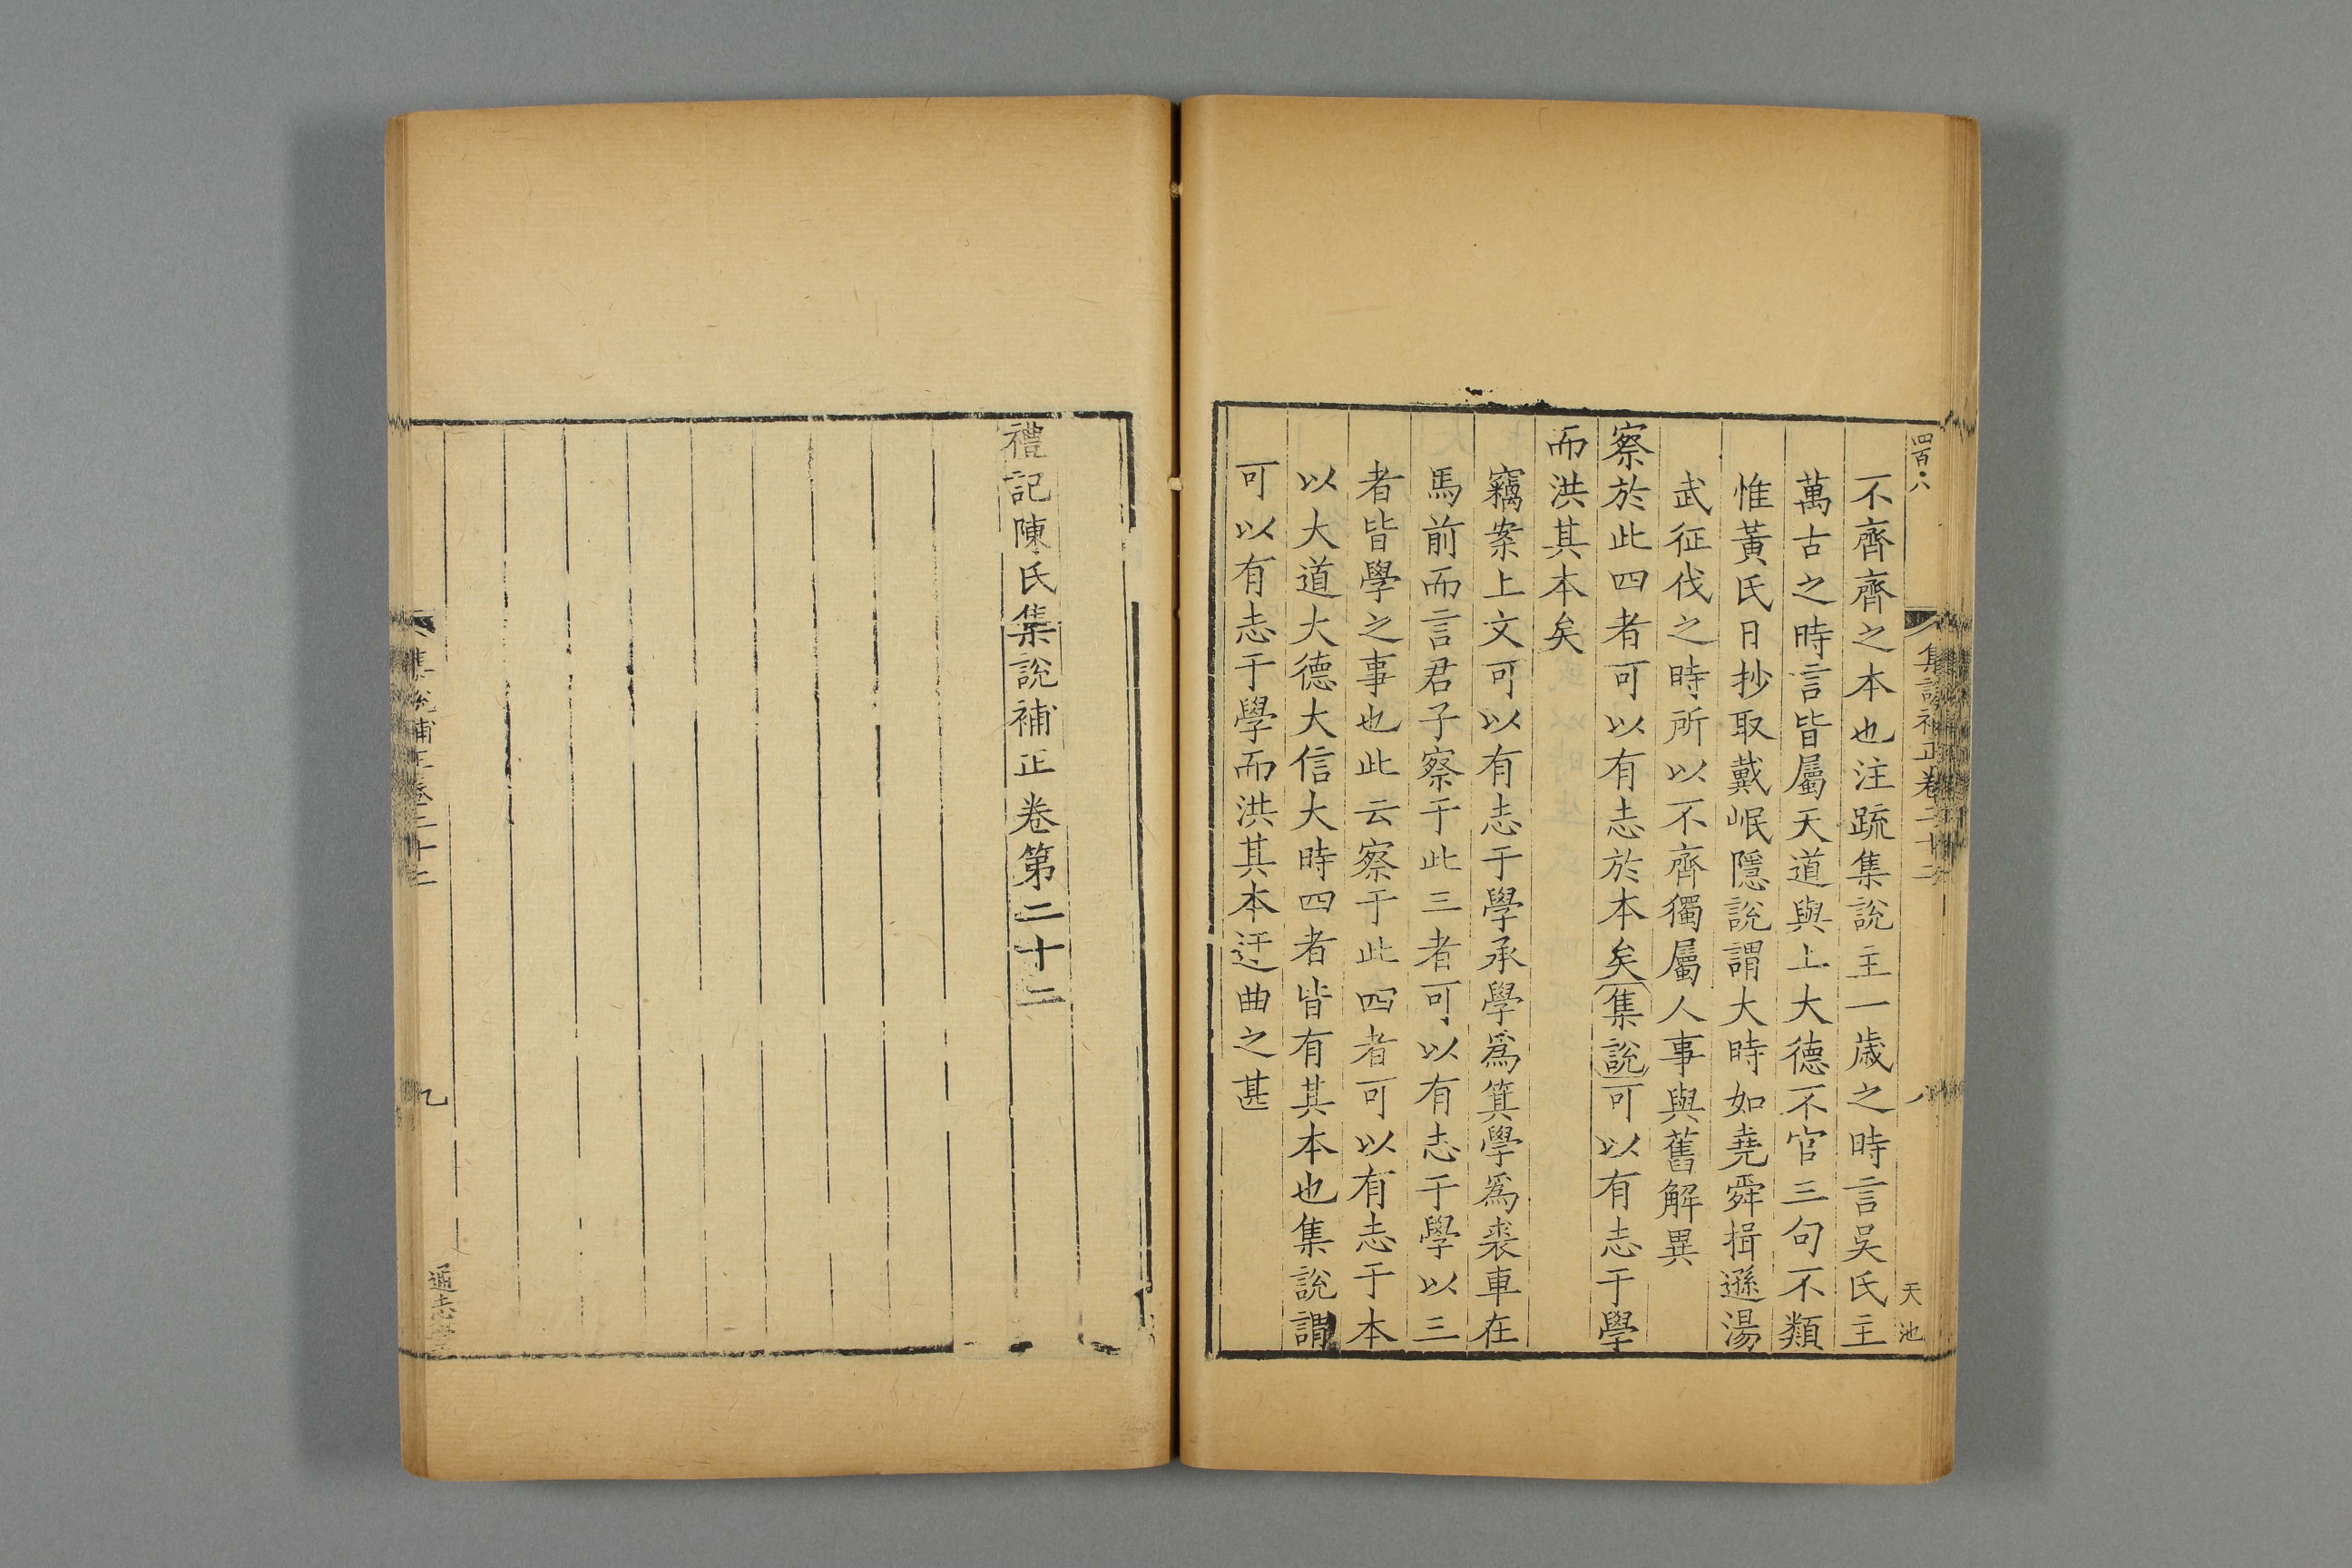 四百六
集說補正卷二十二
八
天池
不齊齊之本也注疏集說主一歲之時言吳氏主
萬古之時言皆屬天道與上大德不官三句不類
惟黃氏日抄取戴岷隱說謂大時如堯舜揖遜湯
武征伐之時所以不齊獨屬人事與舊解異
察於此四者可以有志於本矣集說可以有志于學
而洪其本矣
竊案上文可以有志于學承學為箕學為裘車在
馬前而言君子察于此三者可以有志于學以三
者皆學之事也此云察于此四者可以有志于本
以大道大德大信大時四者皆有其本也集說謂
可以有志于學而洪其本迂曲之甚
禮記陳氏集說補正卷第二十二
集說補正卷二十二
九
通志堂